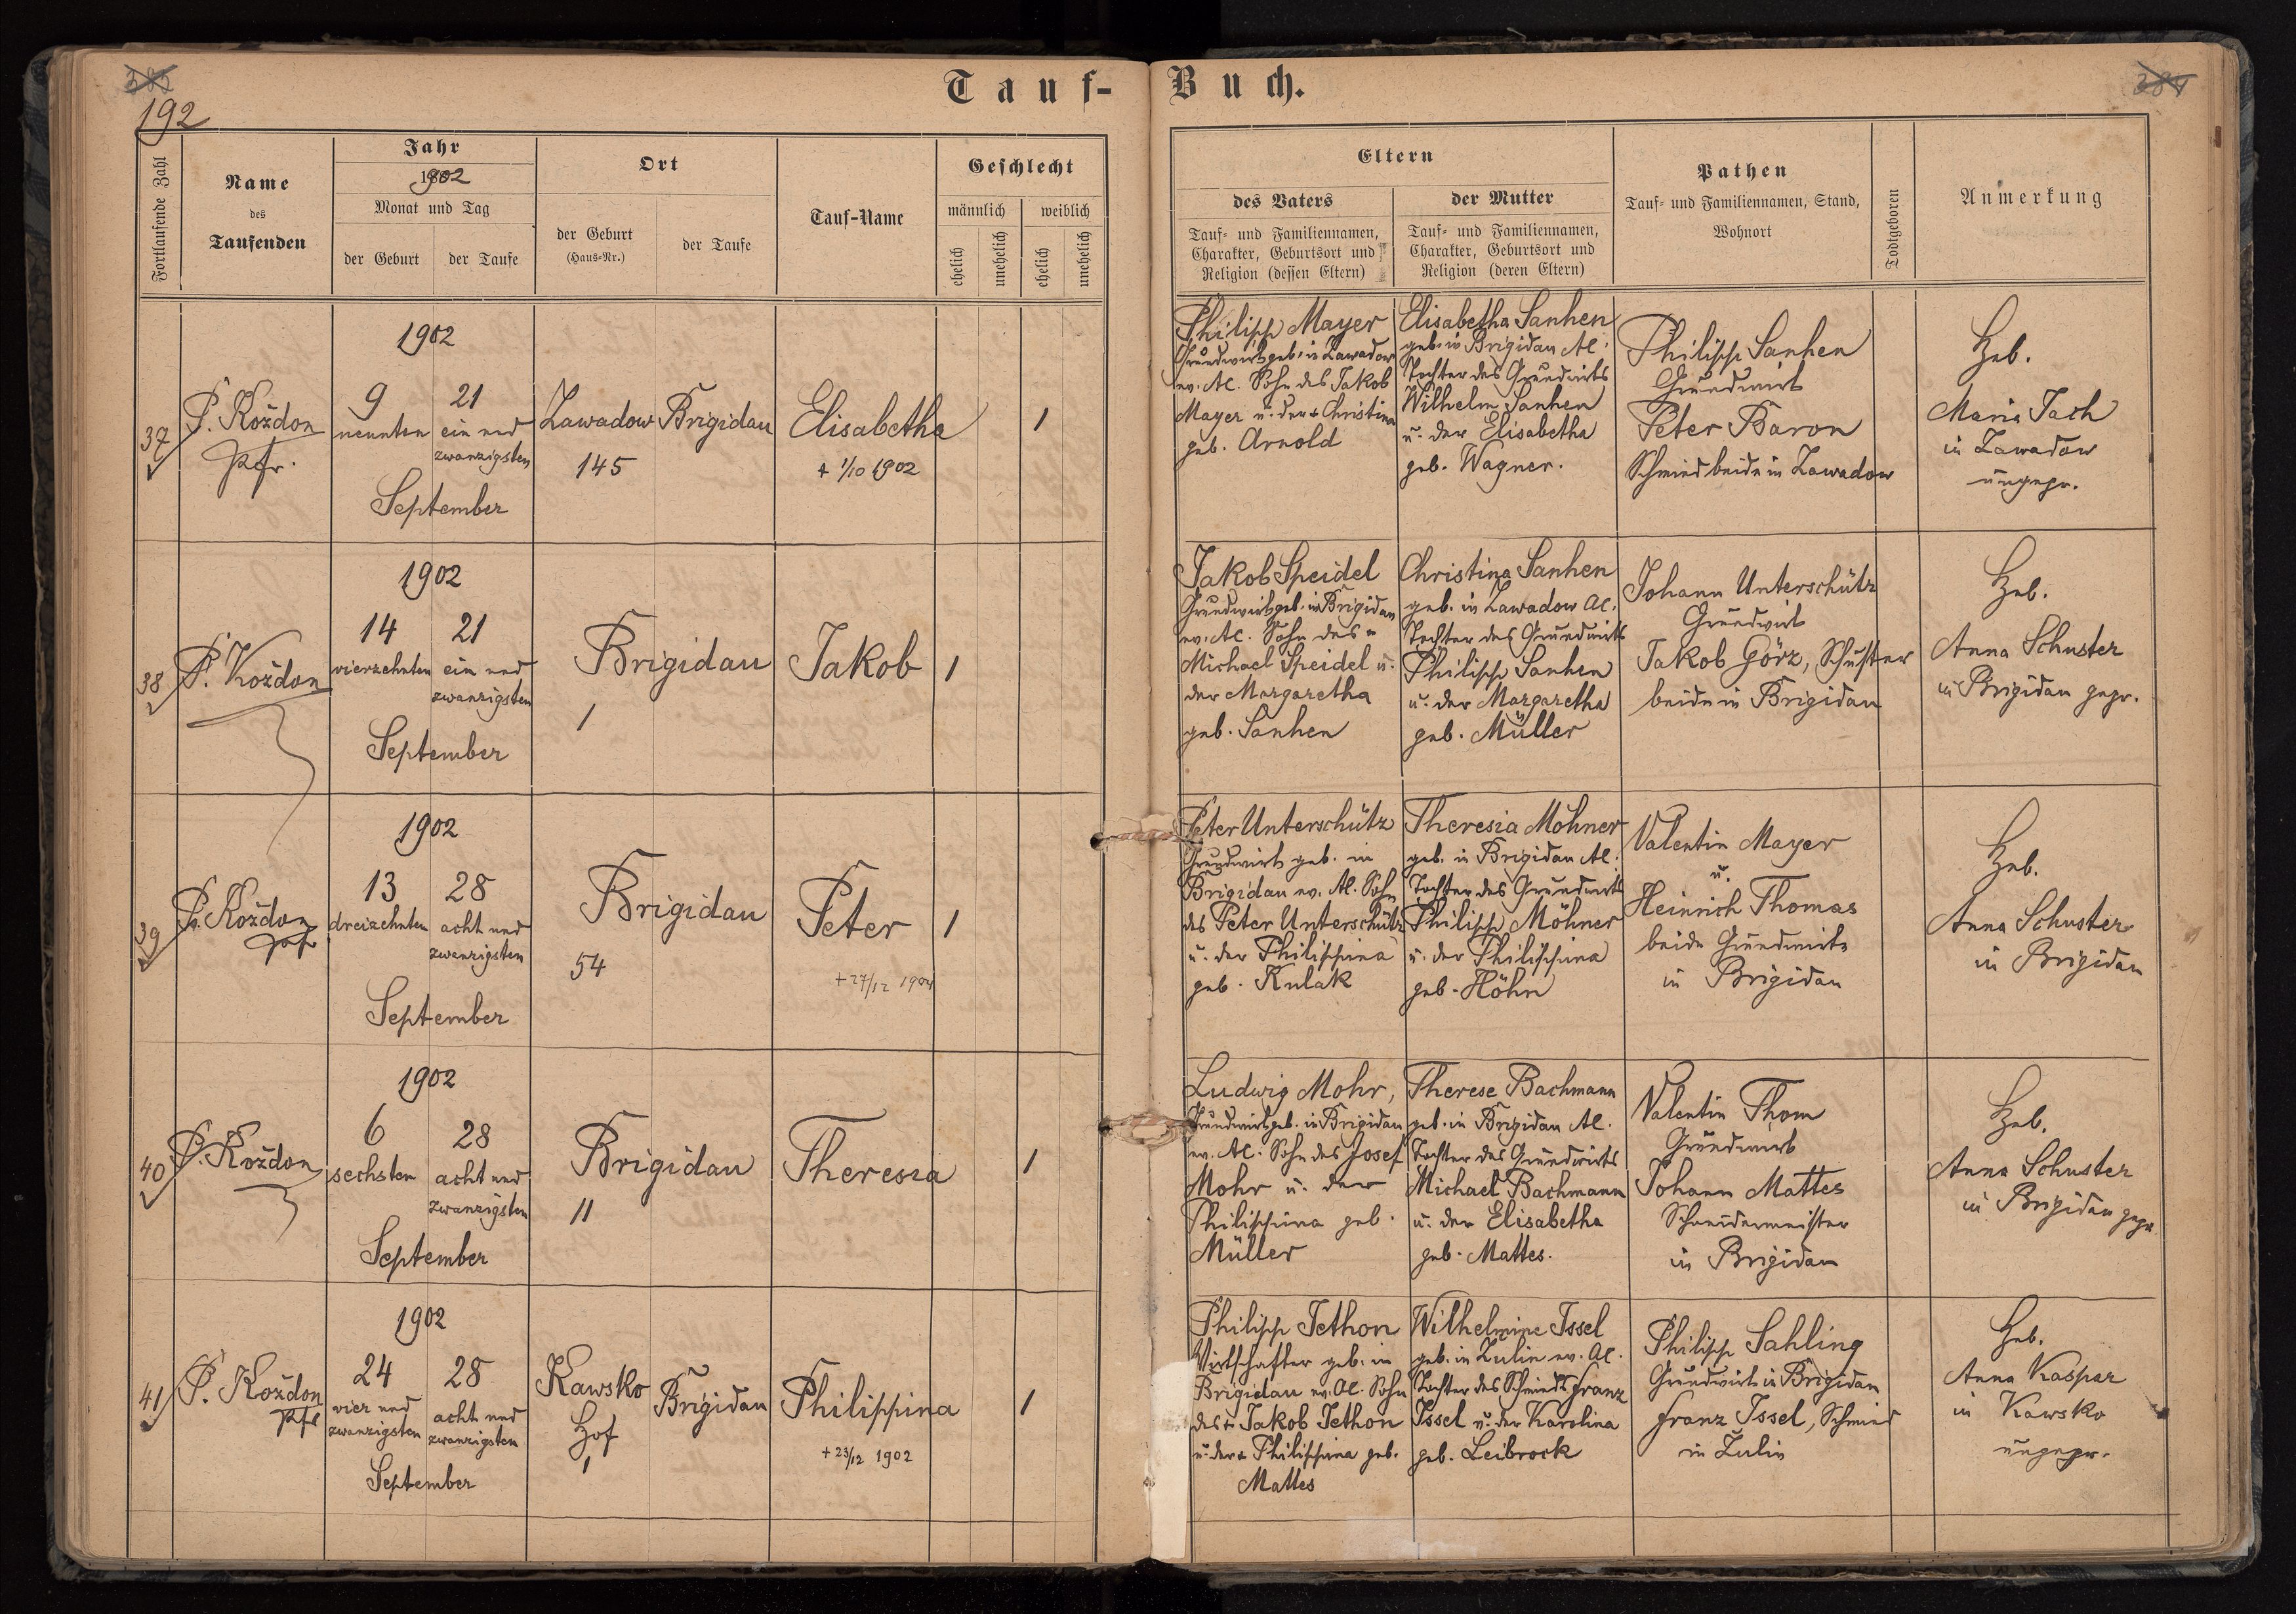 192
Tauf-Buch.
Fortlaufende Zahl
Name
des
Taufenden
Jahr
1902
Monat und Tag
der Geburt
der Taufe
Ort
der Geburt
(Haus-Nr.)
der Taufe
Tauf-Name
Geschlecht
männlich
weiblich
ehelich
unehelich
ehelich
unehelich
Eltern
des Vaters
Tauf- und Familiennamen,
Charakter, Geburtsort und
Religion (dessen Eltern)
der Mutter
Tauf- und Familiennamen,
Charakter, Geburtsort und
Religion (deren Eltern)
Pathen
Tauf- und Familiennamen, Stand,
Wohnort
Todtgeboren
Anmerkung
37
P. Koždon
Pfr.
1902
9
neunten
21
ein und
zwanzigsten
September
Zawadow
145
Brigidau
Elisabetha
+ 1/10 1902
1
Philipp Mayer
Grundwirt geb. in Zawadow
ev. AC. Sohn des Jakob
Mayer u. der + Christina
geb. Arnold
Elisabetha Sanhen
geb. in Brigidau AC.
Tochter des Grundwirts
Wilhelm Sanhen
u. der Elisabetha
geb. Wagner.
Philipp Sanhen
Grundwirt
Peter Baron
Schmied beide in Zawadow
Heb.
Maria Tach
in Zawadow
ungepr.
38
P. Koždon
1902
14
vierzehnten
21
ein und
zwanzigsten
September
Brigidau
1
Jakob
1
Jakob Speidel
Grundwirt geb. in Brigidau
ev. AC. Sohn des +
Michael Speidel u.
der Margaretha
geb. Sanhen
Christina Sanhen
geb. in Zawadow AC.
Tochter des Grundwirts
Philipp Sanhen
u. der Margaretha
geb. Müller
Johann Unterschütz
Grundwirt
Jakob Görz, Schuster
beide in Brigidau
Heb.
Anna Schuster
in Brigidau gepr.
39
P. Koždon
Pfr
1902
13
dreizehnten
28
acht und
zwanzigsten
September
Brigidau
54
Peter
+ 27/12 1904
1
Peter Unterschütz
Grundwirt geb. in
Brigidau ev. AC. Sohn
des Peter Unterschütz
u. der Philippina
geb. Kulak
Theresia Möhner
geb. in Brigidau AC.
Tochter des Grundwirts
Philipp Möhner
u. der Philippina
geb. Höhn
Valentin Mayer
u.
Heinrich Thomas
beide Grundwirte
in Brigidau
Heb.
Anna Schuster
in Brigidau
40
P. Koždon
1902
6
sechsten
28
acht und
zwanzigsten
September
Brigidau
11
Theresia
1
Ludwig Mohr,
Grundwirt geb. in Brigidau
ev. AC. Sohn des Josef
Mohr u. der
Philippina geb.
Müller
Therese Bachmann
geb. in Brigidau AC.
Tochter des Grundwirts
Michael Bachmann
u. der Elisabetha
geb. Mattes.
Valentin Thom
Grundwirt
Johann Mattes
Schneidermeister
in Brigidau
Heb.
Anna Schuster
in Brigidau gepr
41
P. Koždon
Pfr
1902
24
vier und
zwanzigsten
28
acht und
zwanzigsten
September
Kawsko
Hof
1
Brigidau
Philippina
+ 23/12 1902
1
Philipp Jethon
Wirtschafter geb. in
Brigidau ev. AC. Sohn
des + Jakob Jethon
u. der + Philippina geb.
Mattes
Wilhelmine Issel
geb. in Zulin ev. AC.
Tochter des Schmieds Franz
Issel u. der Karolina
geb. Leibrock
Philipp Sahling
Grundwirt in Brigidau
Franz Issel, Schmied
in Zulin
Heb.
Anna Kaspar
in Kawsko
ungepr.